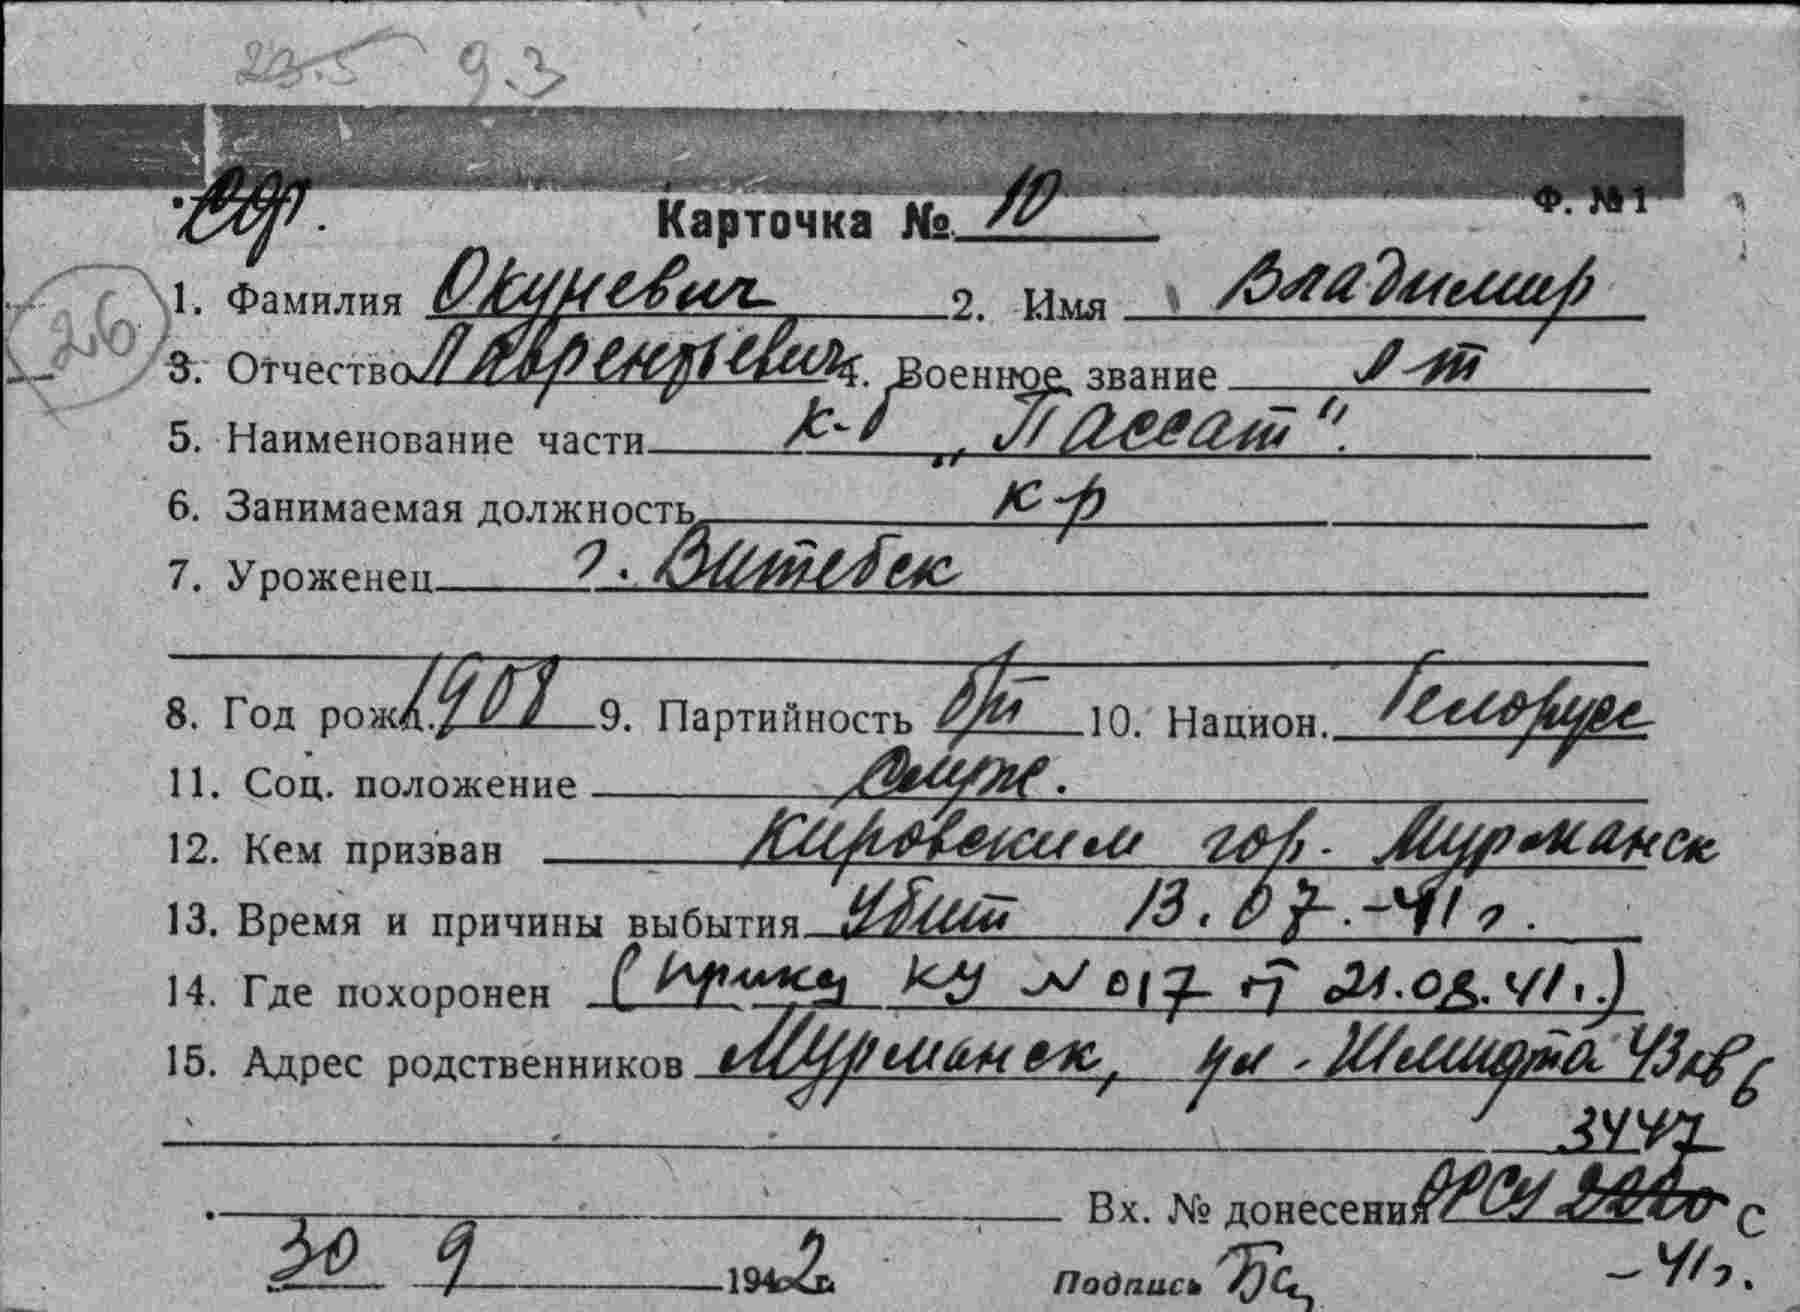 23.5 9.3
Ф. №1
Карточка № 10
26
1. Фамилия Окуневич 2. Имя Владимир
3. Отчество Лаврентьевич 4. Военное звание л-т
5. Наименование части к-ль „Пассат".
6. Занимаемая должность к-р
7. Уроженец г. Витебск
8. Год рожд. 1908 9. Партийность б/п 10. Национ. Белорусс
11. Соц. положение служ.
12. Кем призван Кировским гор. Мурманск
13. Время и причины выбытия Убит 13.07.-41 г.
14. Где похоронен (Приказ КУ N 017 от 21.08.41 г.)
15. Адрес родственников Мурманск, ул. Шмидта 43 кв 6
3447
Вх. № донесения ОРСУ с
-41г.
30 9 1942 г. Подпись